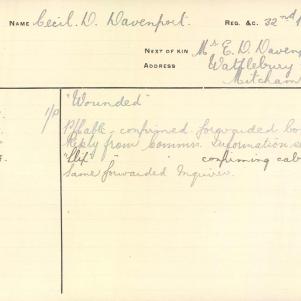 NAME Cecil. D. Davenport. REG. &C. 32nd
NEXT OF KIN Mrs E. D. Daven
ADDRESS Wattlebury
Mitcham
"Wounded"
confirmed forwarded
Reply from Commn. Information
"Slip" confirming cab
same forwarded Inquirer.